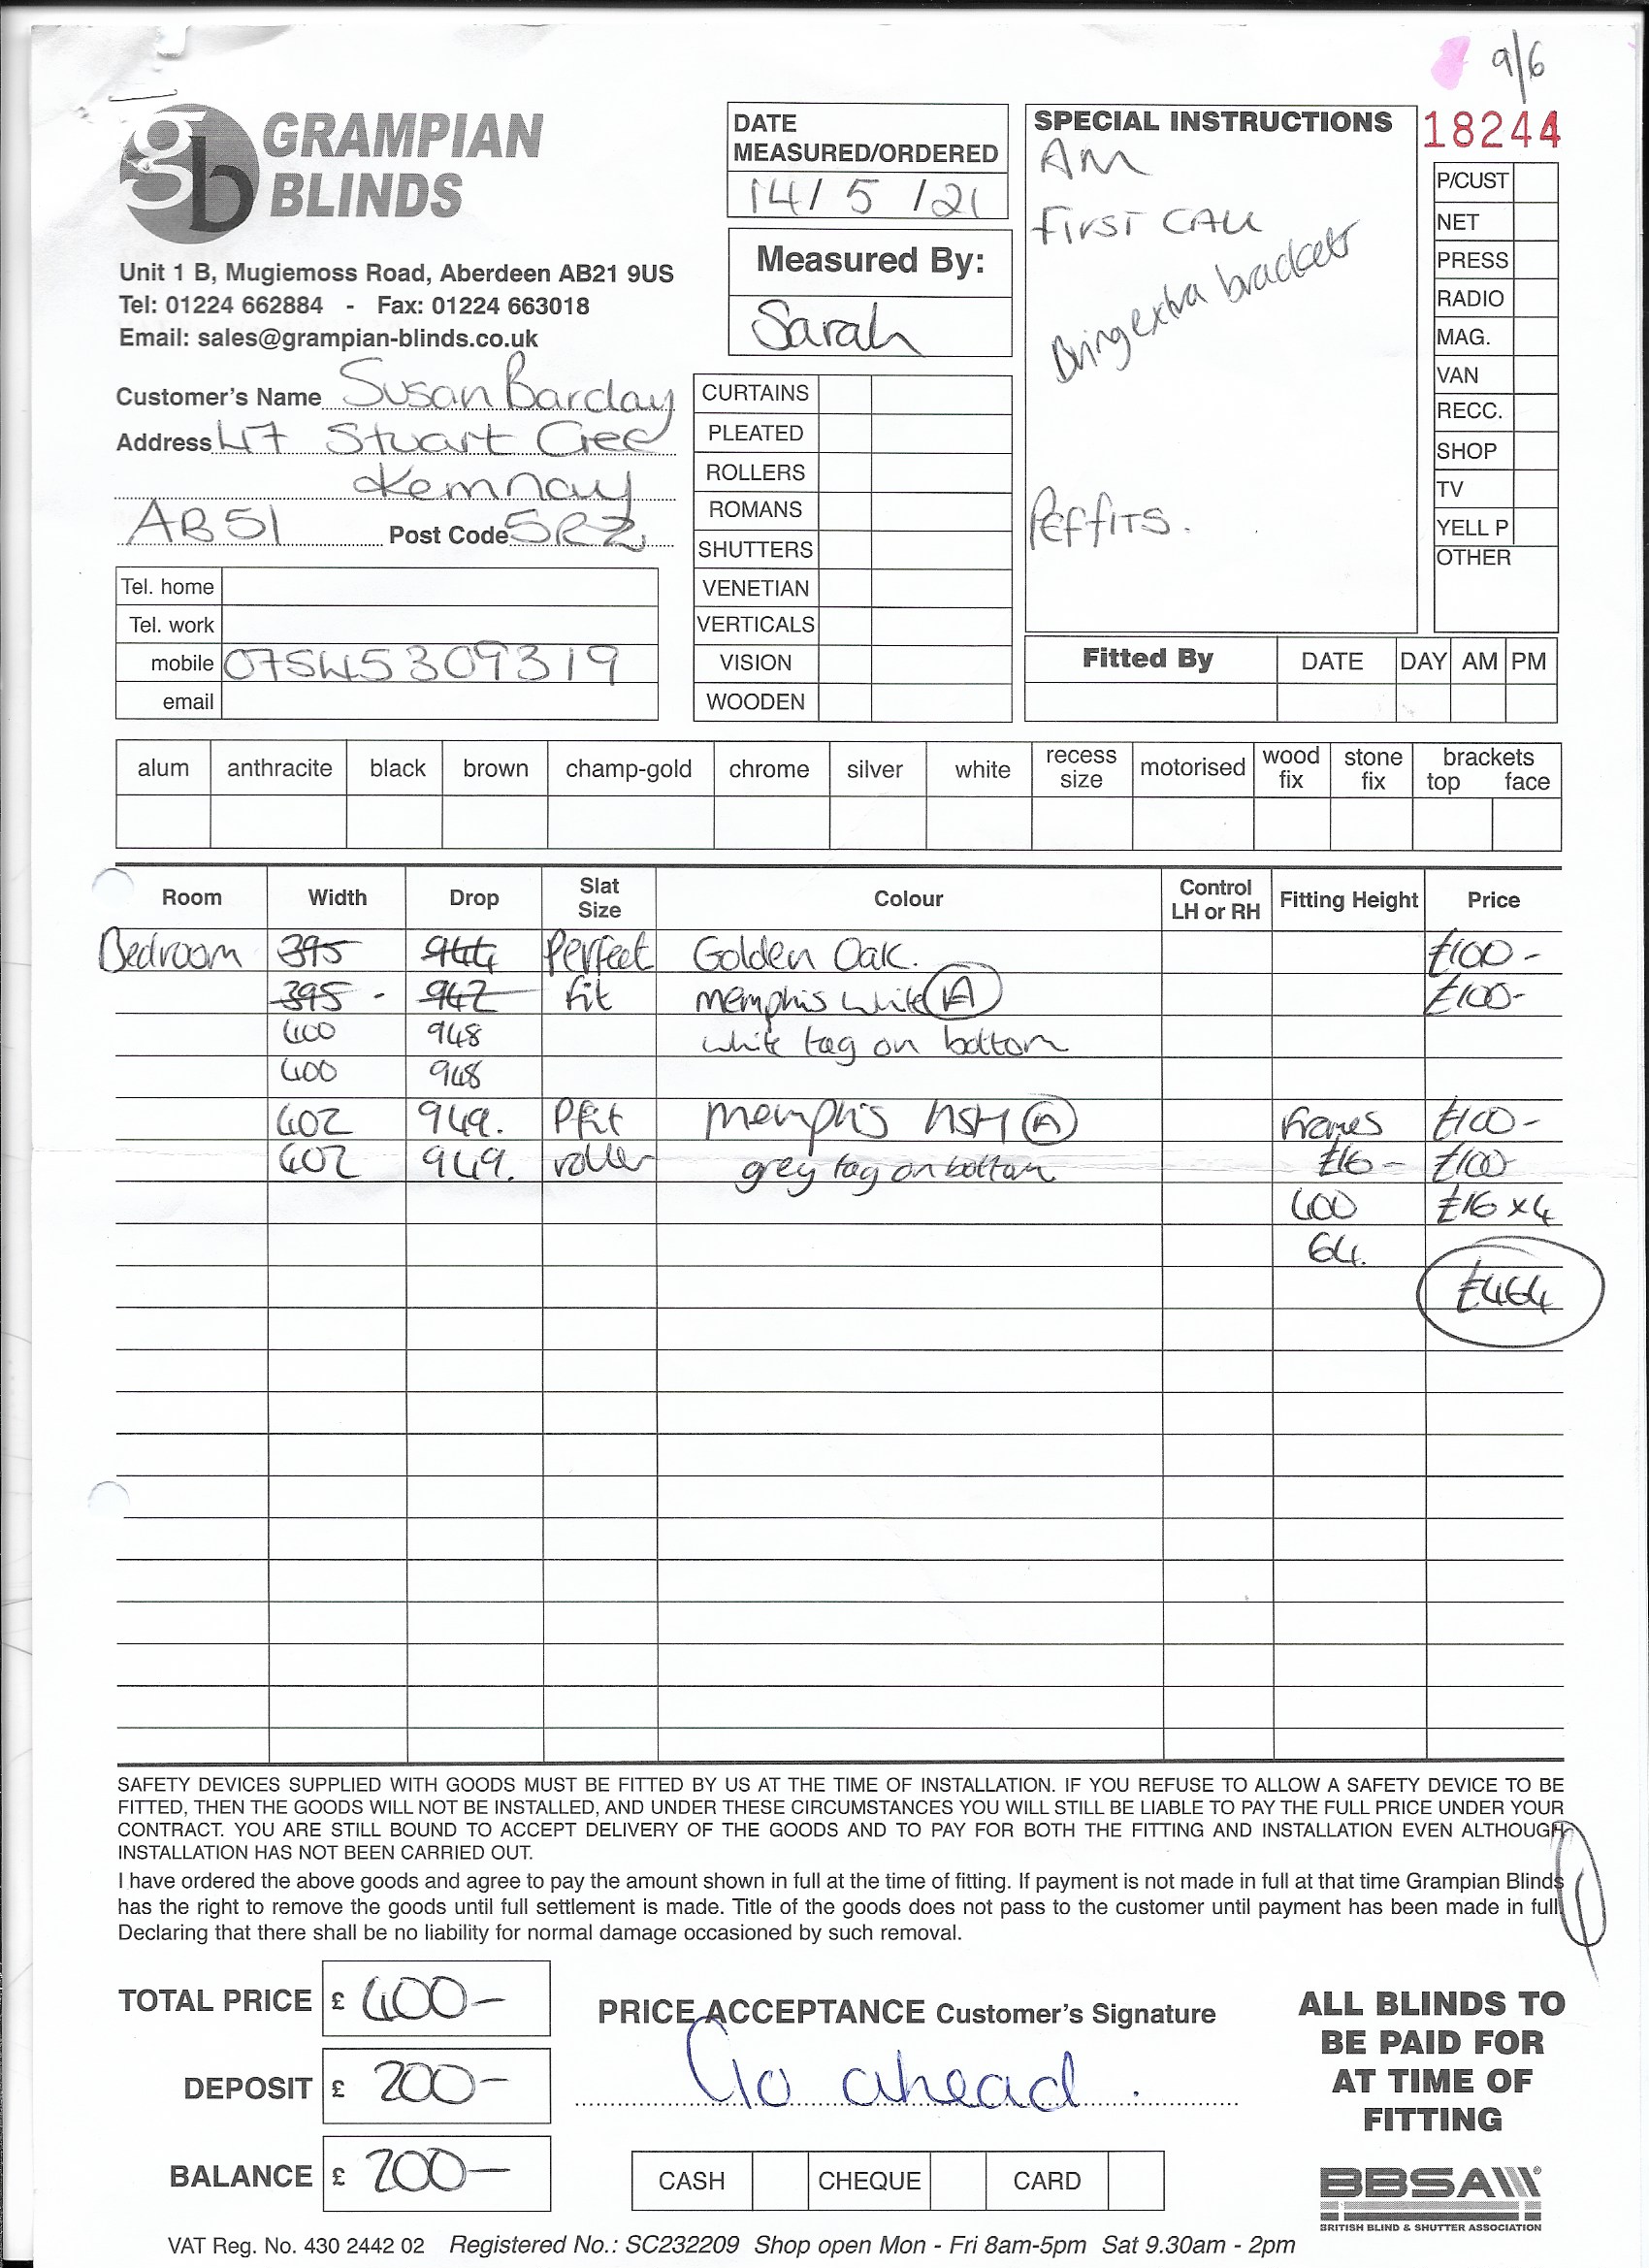 9/6
gb GRAMPIAN
BLINDS
Unit 1 B, Mugiemoss Road, Aberdeen AB21 9US
Tel: 01224 662884 - Fax: 01224 663018
Email: sales@grampian-blinds.co.uk
Customer's Name Susan Barclay
Address 47 Stuart Cres
Kemnay
AB51 Post Code 5RZ
Tel. home
Tel. work
mobile 07545309319
email
DATE
MEASURED/ORDERED
14/ 5 /21
Measured By:
Sarah
CURTAINS
PLEATED
ROLLERS
ROMANS
SHUTTERS
VENETIAN
VERTICALS
VISION
WOODEN
SPECIAL INSTRUCTIONS
AM
FIRST CALL
Bring extra brackets
Perfits.
18244
P/CUST
NET
PRESS
RADIO
MAG.
VAN
RECC.
SHOP
TV
YELL P
OTHER
Fitted By DATE DAY AM PM
alum anthracite black brown champ-gold chrome silver white recess size motorised wood fix stone fix brackets top face
Room Width Drop Slat Size Colour Control LH or RH Fitting Height Price
Bedroom 395 944 Perfect Golden Oak. £100-
395 - 947 fit memphis white (A) £100-
400 948 white tag on bottom
400 948
402 949. Pfit memphis ASH (A) frames £100-
402 949. roller grey tag on bottom £16- £100
400 £16 x4
64.
£464
SAFETY DEVICES SUPPLIED WITH GOODS MUST BE FITTED BY US AT THE TIME OF INSTALLATION. IF YOU REFUSE TO ALLOW A SAFETY DEVICE TO BE
FITTED, THEN THE GOODS WILL NOT BE INSTALLED, AND UNDER THESE CIRCUMSTANCES YOU WILL STILL BE LIABLE TO PAY THE FULL PRICE UNDER YOUR
CONTRACT. YOU ARE STILL BOUND TO ACCEPT DELIVERY OF THE GOODS AND TO PAY FOR BOTH THE FITTING AND INSTALLATION EVEN ALTHOUGH
INSTALLATION HAS NOT BEEN CARRIED OUT.
I have ordered the above goods and agree to pay the amount shown in full at the time of fitting. If payment is not made in full at that time Grampian Blinds
has the right to remove the goods until full settlement is made. Title of the goods does not pass to the customer until payment has been made in full.
Declaring that there shall be no liability for normal damage occasioned by such removal.
TOTAL PRICE £ 400-
DEPOSIT £ 200-
BALANCE £ 200-
PRICE ACCEPTANCE Customer's Signature
Go ahead.
CASH CHEQUE CARD
ALL BLINDS TO
BE PAID FOR
AT TIME OF
FITTING
BBSA®
BRITISH BLIND & SHUTTER ASSOCIATION
VAT Reg. No. 430 2442 02 Registered No.: SC232209 Shop open Mon - Fri 8am-5pm Sat 9.30am - 2pm